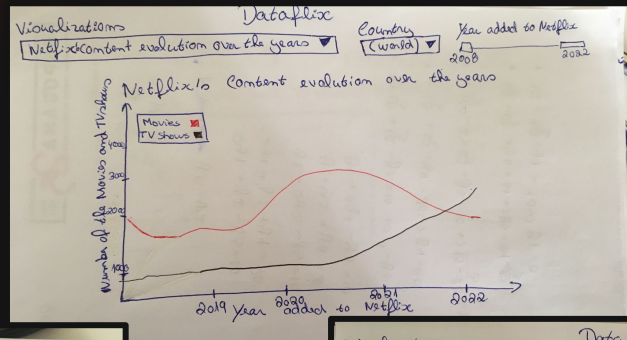 Dataflix
Visualizations
Netflix content evolution over the years
Country
(world)
Year added to Netflix
2008
2022
Netflix's Content evolution over the years
Number of the Movies and TV shows
Movies
TV shows
4000
3000
2000
1000
2019
2020
2021
2022
Year added to Netflix
Data